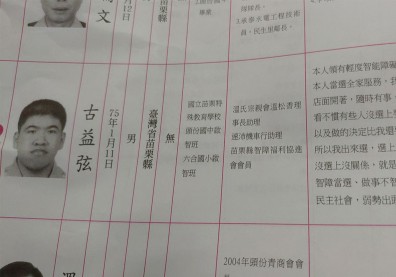 文
月12日
苗栗縣
古益弦
75年1月11日
男
臺灣省苗栗縣
無
國立苗栗特
殊教育學校
頭份國中啟
智班
六合國小啟
智班
溫氏宗親會溫松書理
事長助理
連清機車行助理
苗栗縣智障福利協進
會會員
員，民生里鄰長。
本人領有輕度智能障礙
本人當選全家服務，我
店面開著，隨時有事，
看不慣有些人沒選上
以及做的決定比我還
所以我出來選，選上
沒選上沒關係，就是
智障當選、做事不智
民主社會，弱勢出頭
2004年頭份青商會會